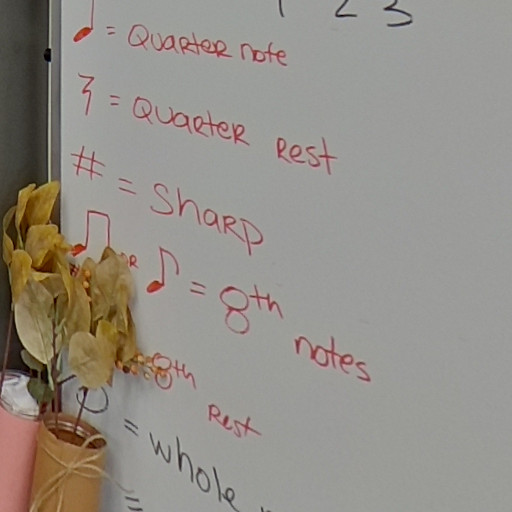 1 2 3
= Quarter note
= Quarter Rest
# = Sharp
OR = 8th notes
8th Rest
= whole
=